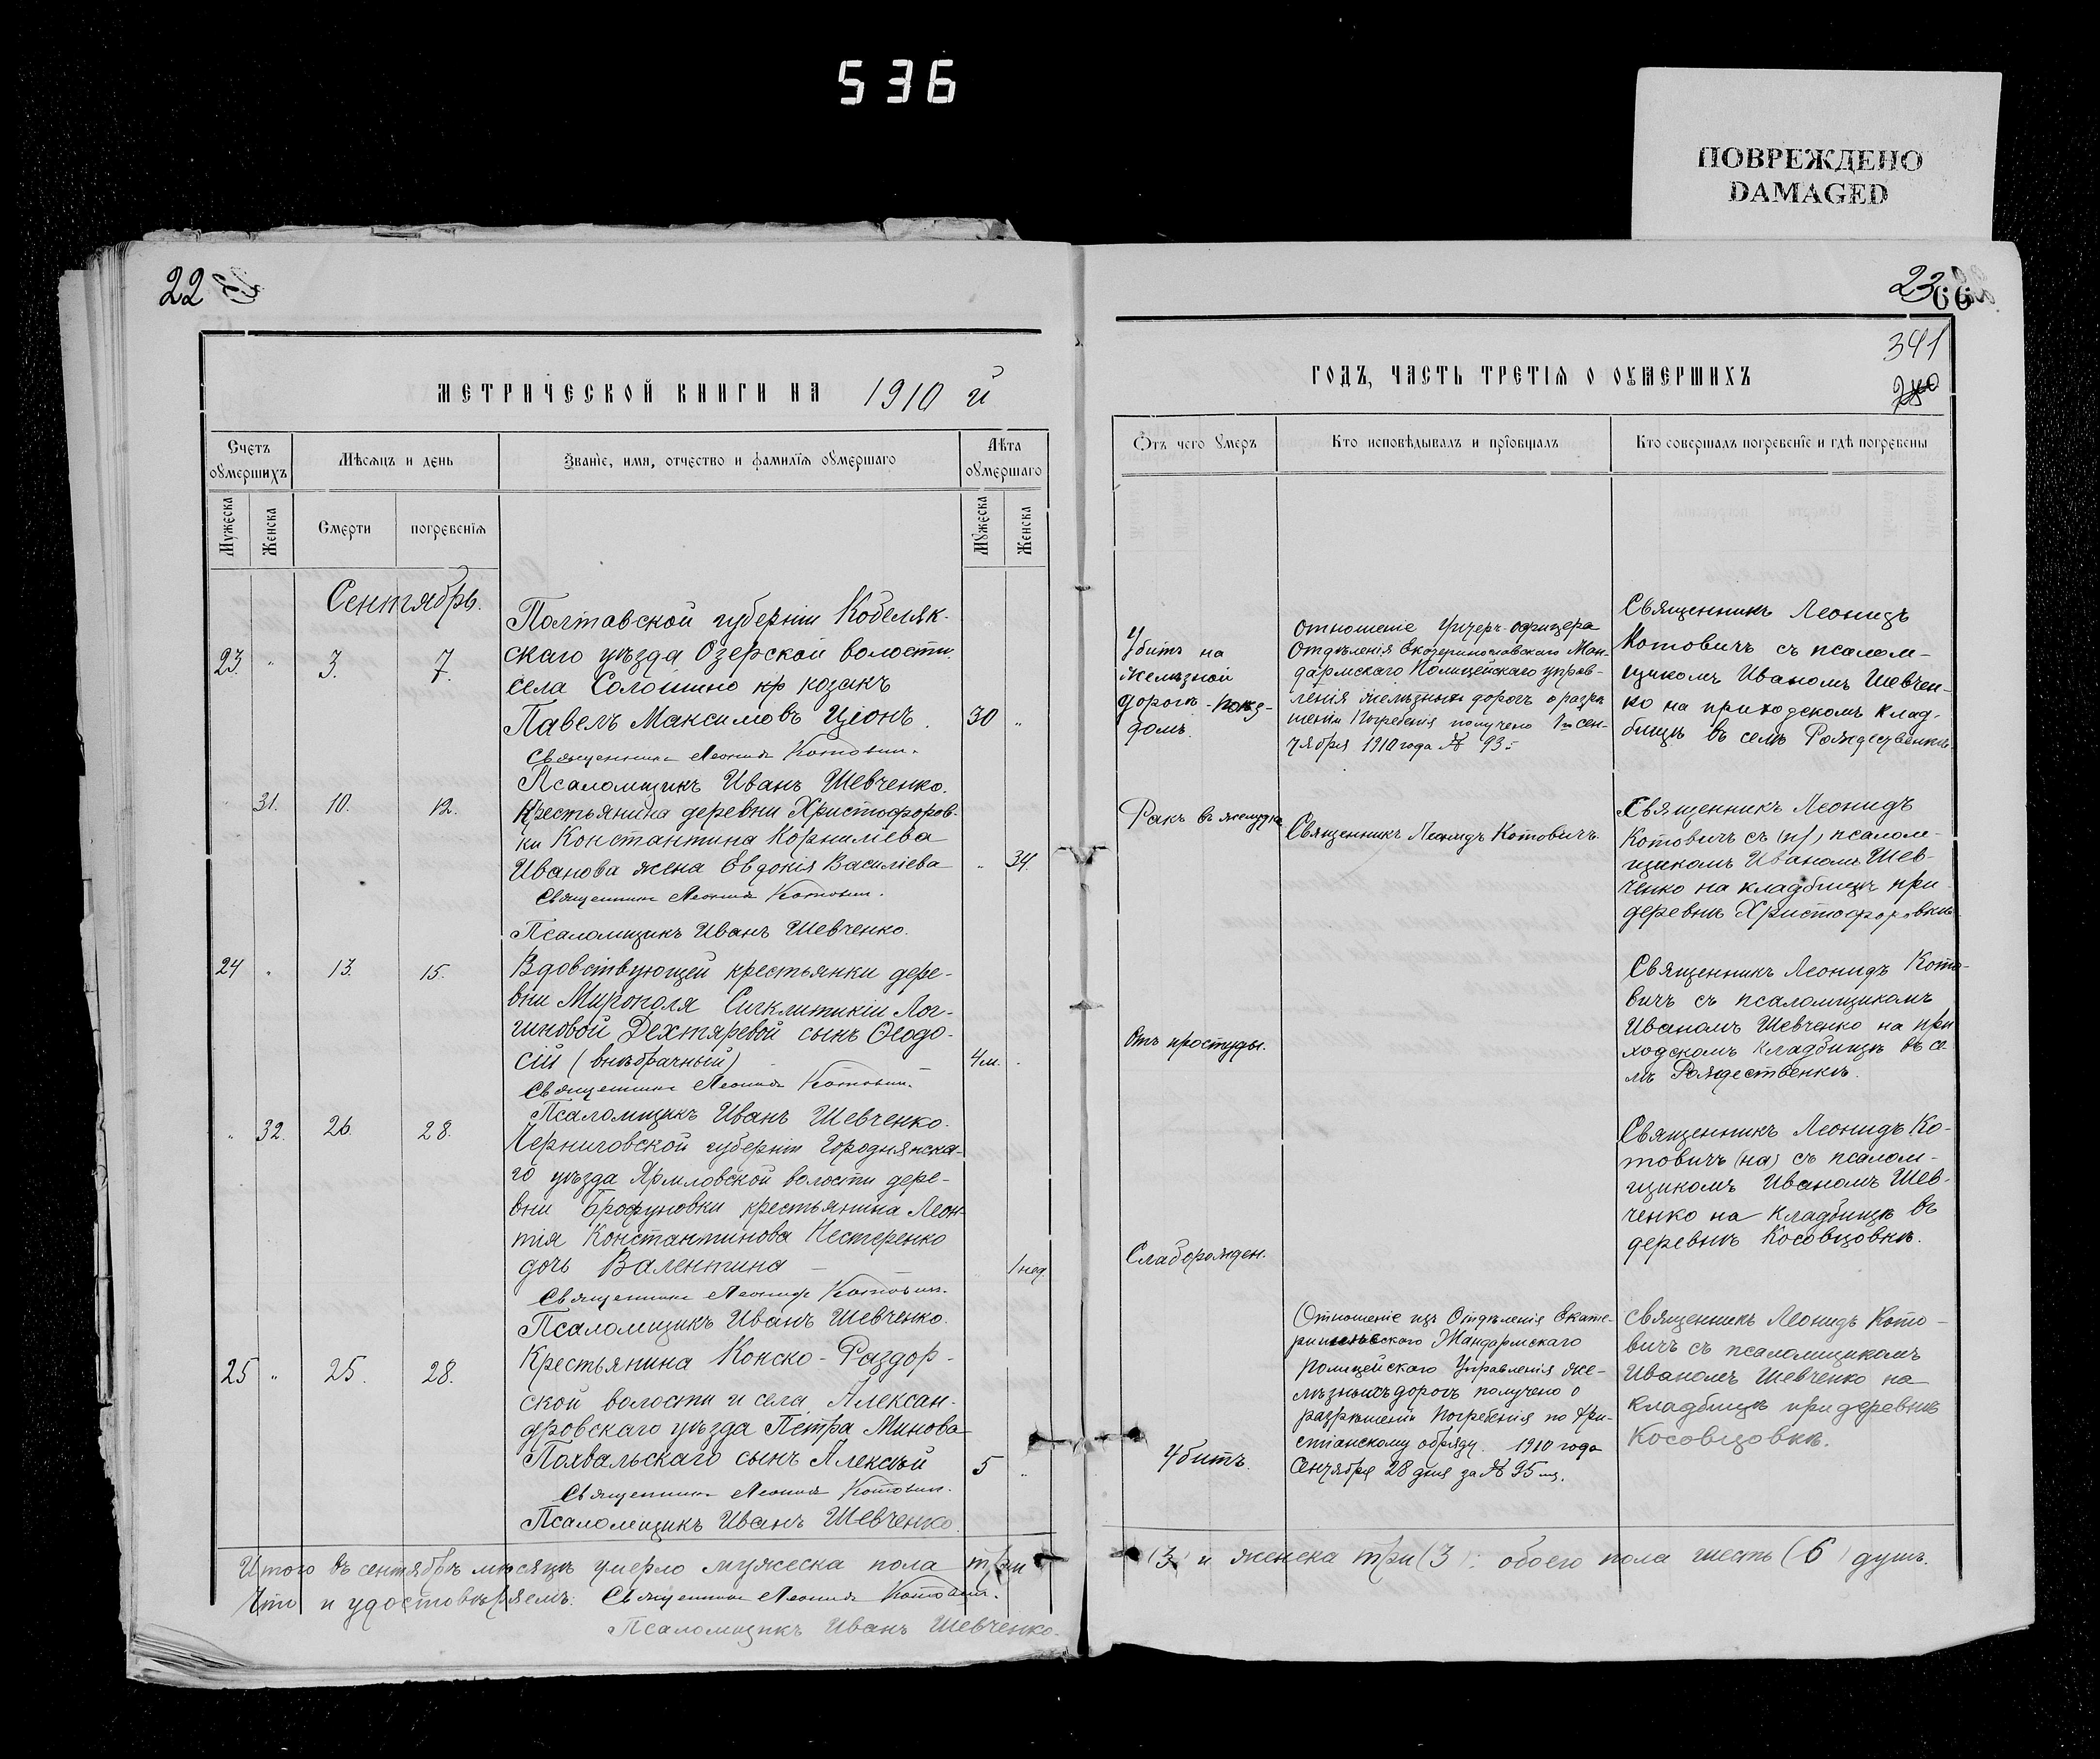 536
ПОВРЕЖДЕНО
DAMAGED
22
МЕТРИЧЕСКОЙ КНИГИ НА 1910 й
Счетъ умершихъ
Мужеска
Женска
Мѣсяцъ и день
Смерти
погребенія
Званіе, имя, отчество и фамилія умершаго
Лѣта умершаго
Мужеска
Женска
Сентябрь.
23. " 3. 7.
Полтавской губерніи Кобеляк-
скаго уѣзда Озерской волости
села Солошино кр козакъ
Павелъ Максимовъ Ціонъ. 30 "
Священникъ Леонидъ Котович.
Псаломщикъ Иванъ Шевченко.
31. 10. 12.
Крестьянина деревни Христофоров-
ки Константина Корниліева
Иванова жена Евдокія Василіева " 34.
Священникъ Леонидъ Котович.
Псаломщикъ Иванъ Шевченко.
24 " 13. 15.
Вдовствующей крестьянки дере-
вни Мирополя Сигклитикіи Лог-
гиновой Дехтяревой сынъ Ѳеодо-
сій (внѣбрачный) 4 м.
Священникъ Леонидъ Котович.
Псаломщикъ Иванъ Шевченко.
" 32. 26. 28.
Черниговской губерніи Городнянска-
го уѣзда Яриловской волости дере-
вни крестьянина Леон-
тія Константинова Нестеренко
дочь Валентина 1 нед.
Священникъ Леонидъ Котович.
Псаломщикъ Иванъ Шевченко.
25 " 25. 28.
Крестьянина Конско-Раздор-
ской волости и села, Алексан-
дровскаго уѣзда Петра Минова
Похвальскаго сынъ Алексѣй 5 "
Священникъ Леонидъ Котович.
Псаломщикъ Иванъ Шевченко.
Итого въ сентябрѣ мѣсяцѣ умерло мужеска пола три
Что и удостовѣряемъ: Священникъ Леонидъ Котович.
Псаломщикъ Иванъ Шевченко.
23
66
341
ГОДЪ, ЧАСТЬ ТРЕТІЯ О УМЕРШИХЪ
Отъ чего умеръ
Кто исповѣдывалъ и пріобщалъ
Кто совершалъ погребеніе и гдѣ погребены
Убитъ на
желѣзной
дорогѣ - поѣз-
домъ.
Отношеніе Унтеръ-офицера
Отдѣленія Екатеринославскаго Жан-
дармскаго Полицейскаго управ-
ленія желѣзныхъ дорогъ о разрѣ
шеніи Погребенія получено сен-
тября 1910 года № 93.
Священникъ Леонидъ
Котовичъ съ псалом-
щикомъ Иваномъ Шевчен-
ко на приходскомъ клад-
бищѣ въ селѣ Рождественкѣ
Ракъ въ желудкѣ
Священникъ Леонидъ Котовичъ.
Священникъ Леонидъ
Котовичъ съ псалом-
щикомъ Иваномъ Шев-
ченко на кладбищѣ при
деревнѣ Христофоровкѣ.
Отъ простуды.
Священникъ Леонидъ Кото-
вичъ съ псаломщикомъ
Иваномъ Шевченко на при
ходскомъ кладбищѣ въ се
лѣ Рождественкѣ.
Слаборожден.
Священникъ Леонидъ Ко-
товичъ (на) съ псалом-
щикомъ Иваномъ Шев-
ченко на кладбищѣ въ
деревнѣ Косовцовкѣ.
Убитъ.
Отношеніе изъ Отдѣленія Екате-
ринславскаго Жандармскаго
Полицейскаго Управленія же-
лѣзныхъ дорогъ получено о
разрѣшеніи погребенія по хри-
стіанскому обряду. 1910 года
Сентября 28 дня за № 95
Священникъ Леонидъ Кото-
вичъ съ псаломщикомъ
Иваномъ Шевченко на
кладбищѣ при деревнѣ
Косовцовкѣ.
(3) и женска три (3): обоего пола шесть (6) душъ.